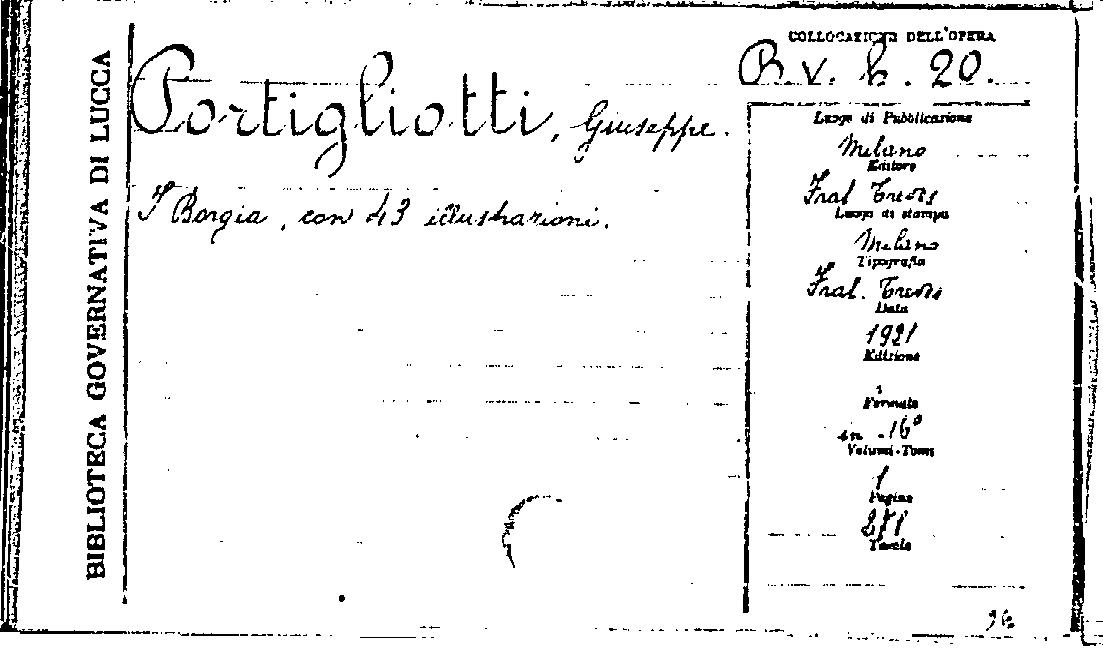 BIBLIOTECA GOVERNATIVA DI LUCCA
Portigliotti, Giuseppe.
I Borgia, con 43 illustrazioni.
COLLOCAZIONE DELL'OPERA
B. v. h. 20.
Luogo di Pubblicazione
Milano
Editore
Frat. Treves
Luogo di stampa
Milano
Tipografia
Frat. Treves
Data
1921
Edizione
Formato
in -16°
Volumi-Tomi
1
Pagine
271
Tavole